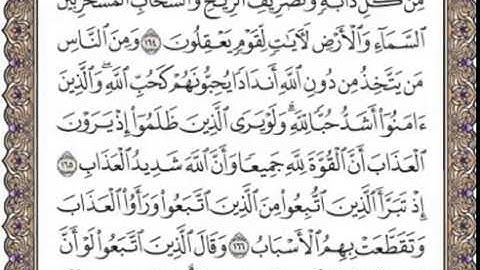 مِن كُلِّ دَآبَّةٍ وَتَصْرِيفِ ٱلرِّيَٰحِ وَٱلسَّحَابِ ٱلْمُسَخَّرِ بَيْنَ
ٱلسَّمَآءِ وَٱلْأَرْضِ لَءَايَٰتٍ لِّقَوْمٍ يَعْقِلُونَ ١٦٤ وَمِنَ ٱلنَّاسِ
مَن يَتَّخِذُ مِن دُونِ ٱللَّهِ أَندَادًا يُحِبُّونَهُمْ كَحُبِّ ٱللَّهِۖ وَٱلَّذِينَ
ءَامَنُوٓا۟ أَشَدُّ حُبًّا لِّلَّهِۗ وَلَوْ يَرَى ٱلَّذِينَ ظَلَمُوٓا۟ إِذْ يَرَوْنَ
ٱلْعَذَابَ أَنَّ ٱلْقُوَّةَ لِلَّهِ جَمِيعًا وَأَنَّ ٱللَّهَ شَدِيدُ ٱلْعَذَابِ ١٦٥
إِذْ تَبَرَّأَ ٱلَّذِينَ ٱتُّبِعُوا۟ مِنَ ٱلَّذِينَ ٱتَّبَعُوا۟ وَرَأَوُا۟ ٱلْعَذَابَ
وَتَقَطَّعَتْ بِهِمُ ٱلْأَسْبَابُ ١٦٦ وَقَالَ ٱلَّذِينَ ٱتَّبَعُوا۟ لَوْ أَنَّ